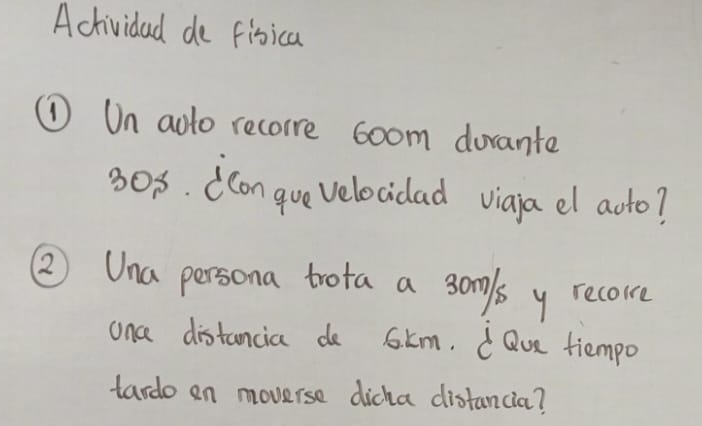 Actividad de física
① Un auto recorre 600m durante
30s. ¿Con que velocidad viaja el auto?
② Una persona trota a 30m/s y recorre
una distancia de 6km. ¿Que tiempo
tardo en moverse dicha distancia?